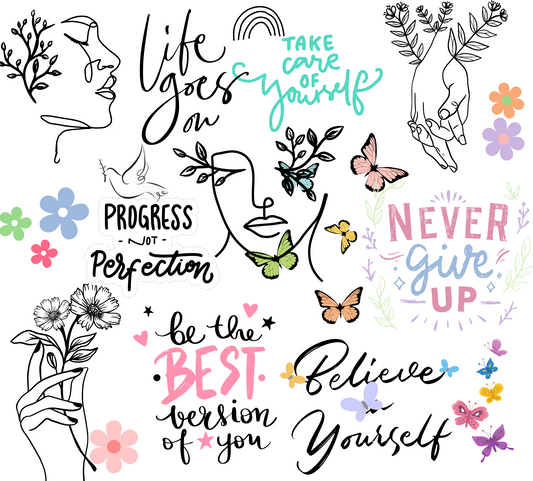 Life
goes
on
TAKE
care
OF
Yourself
PROGRESS
- NOT -
Perfection
NEVER
give
UP
be the
BEST
version
of you
Believe
Yourself